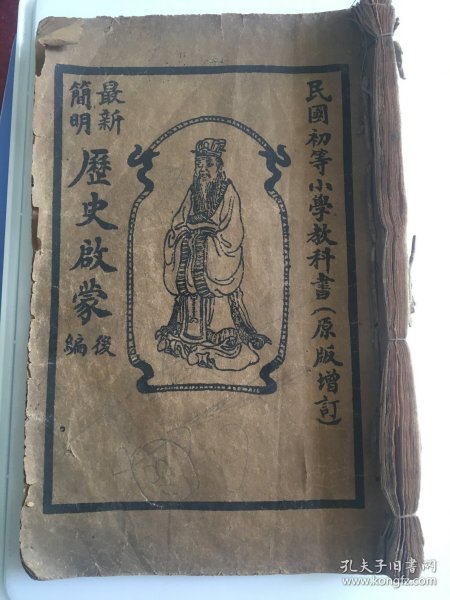 民國初等小學教科書（原版增訂）
最新
簡明
歷史啟蒙
後
編
孔夫子旧书网
www.kongfz.com